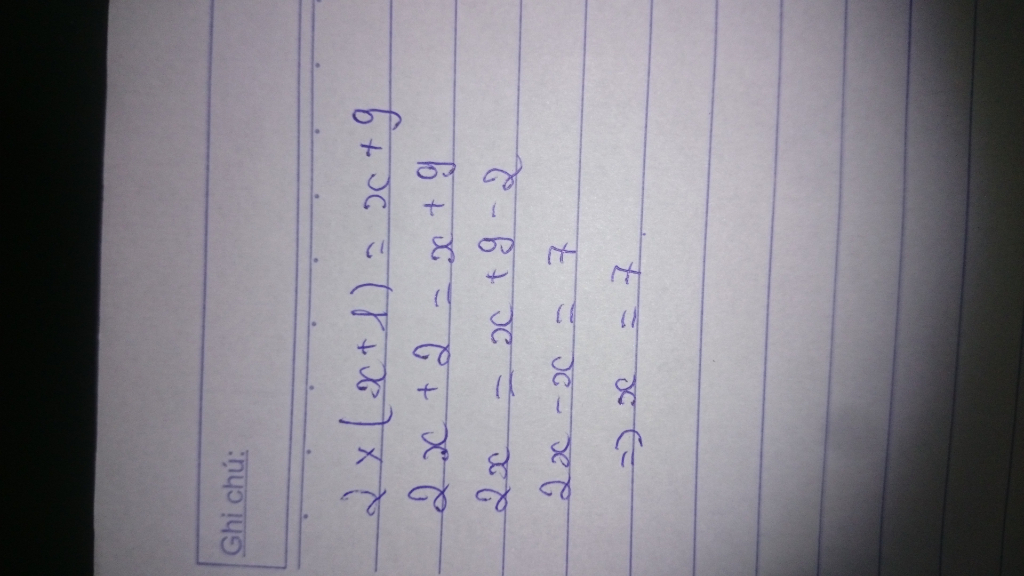 Ghi chú:
2 × (x + 1) = x + 9
2x + 2 = x + 9
2x = x + 9 - 2
2x - x = 7
=> x = 7